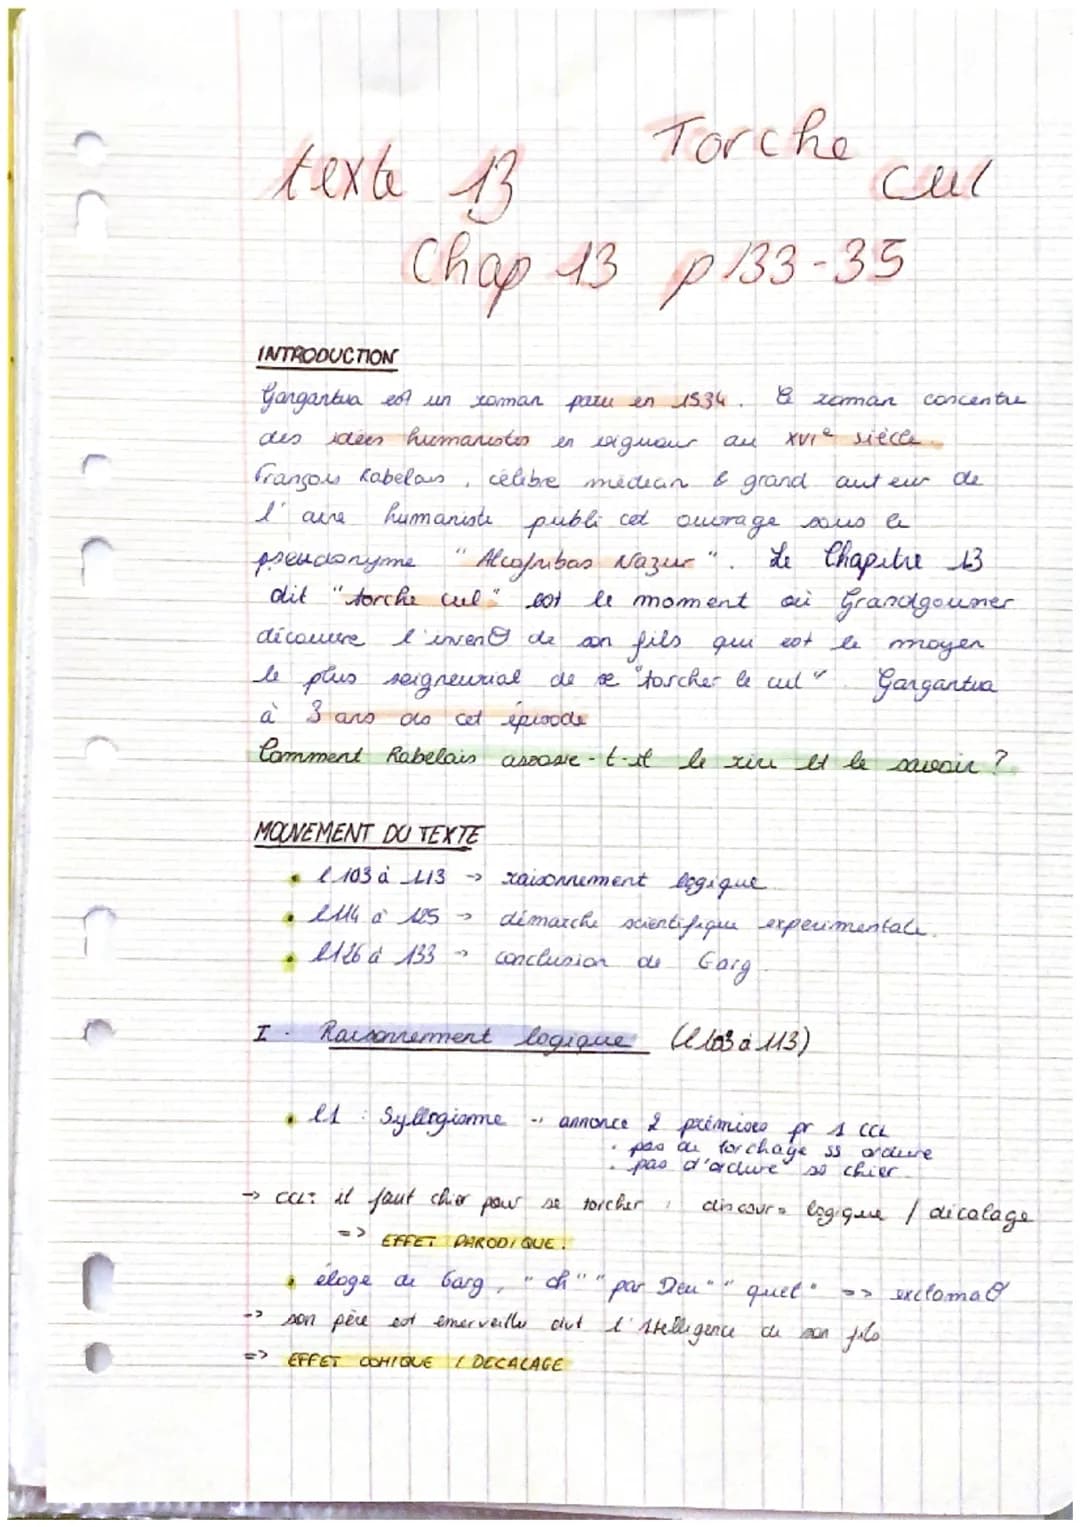 texte 13 Torche cul
Chap 13 p 133-35
INTRODUCTION
Gargantua est un roman paru en 1534. Ce roman concentre
des idées humanistes en vigueur au XVIe siècle.
François Rabelais, célèbre médecin & grand auteur de
l'aire humaniste publi cet ouvrage sous le
pseudonyme "Alcofribas Nazur". Le Chapitre 13
dit "torche cul" est le moment où Grandgousier
découvre l'invenO de son fils qui est le moyen
le plus seigneurial de se "torcher le cul". Gargantua
à 3 ans ds cet épisode
Comment Rabelais associe-t-il le rire et le savoir ?
MOUVEMENT DU TEXTE
• l 103 à 113 -> raisonnement logique
• l 114 à 125 -> démarche scientifique experimentale.
• l 126 à 133 -> conclusion de Garg.
I. Raisonnement logique (l 103 à 113)
• l1 : Syllogisme -> annonce 2 prémises pr 1 ccl
• pas de torchage ss ordure
• pas d'ordure ss chier
-> ccl: il faut chier pour se torcher, discours logique / décalage
=> EFFET PARODIQUE.
• éloge de Garg, "oh" "par Dieu" "quel" => exclamaO
-> son père est emerveillé dvt l'intelligence de son fils
=> EFFET COMIQUE / DECALAGE